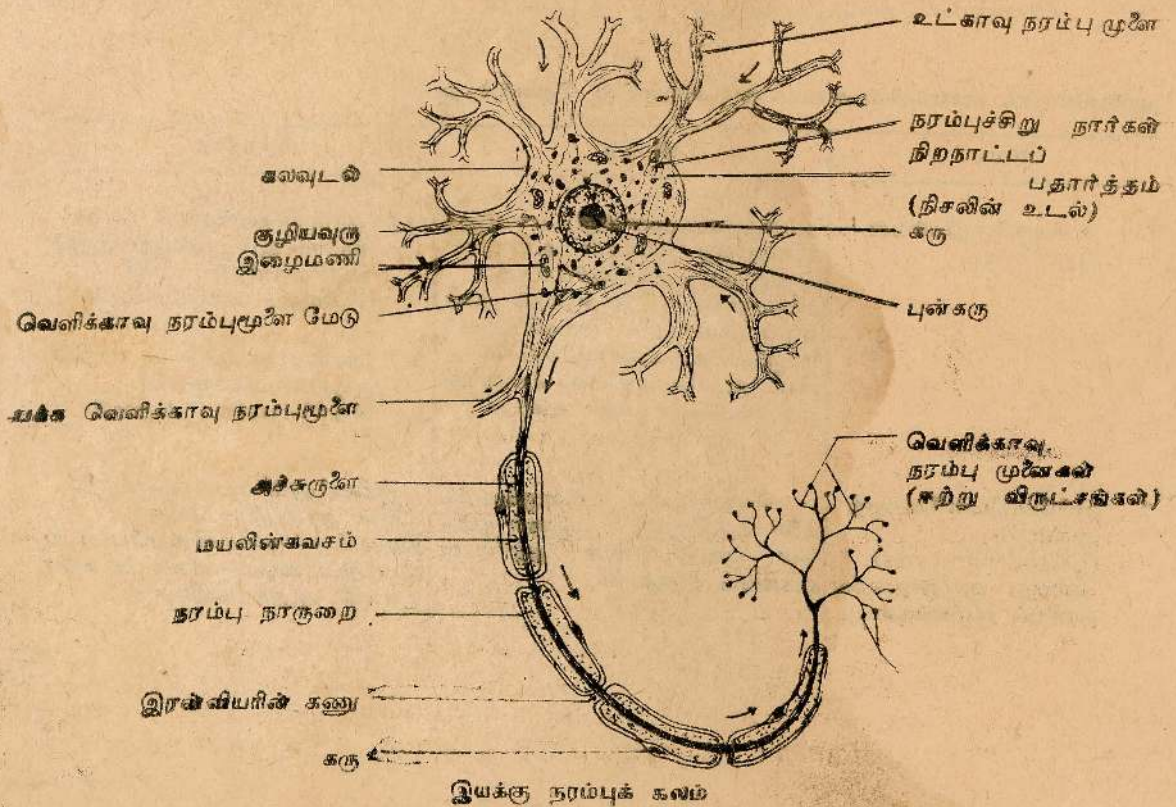 உட்காவு நரம்பு முளை
நரம்புச்சிறு நார்கள்
நிறநாட்டப்
பதார்த்தம்
(நிசலின் உடல்)
கரு
புன்கரு
கலவுடல்
குழியவுரு
இழைமணி
வெளிக்காவு நரம்புமூளை மேடு
வெளிக்காவு நரம்புமூளை
அச்சுருளை
மயலின்கவசம்
நரம்பு நாருறை
இரன்வியரின் கணு
கரு
வெளிக்காவு
நரம்பு முனைகள்
(ஈற்று விருட்சங்கள்)
இயக்கு நரம்புக் கலம்